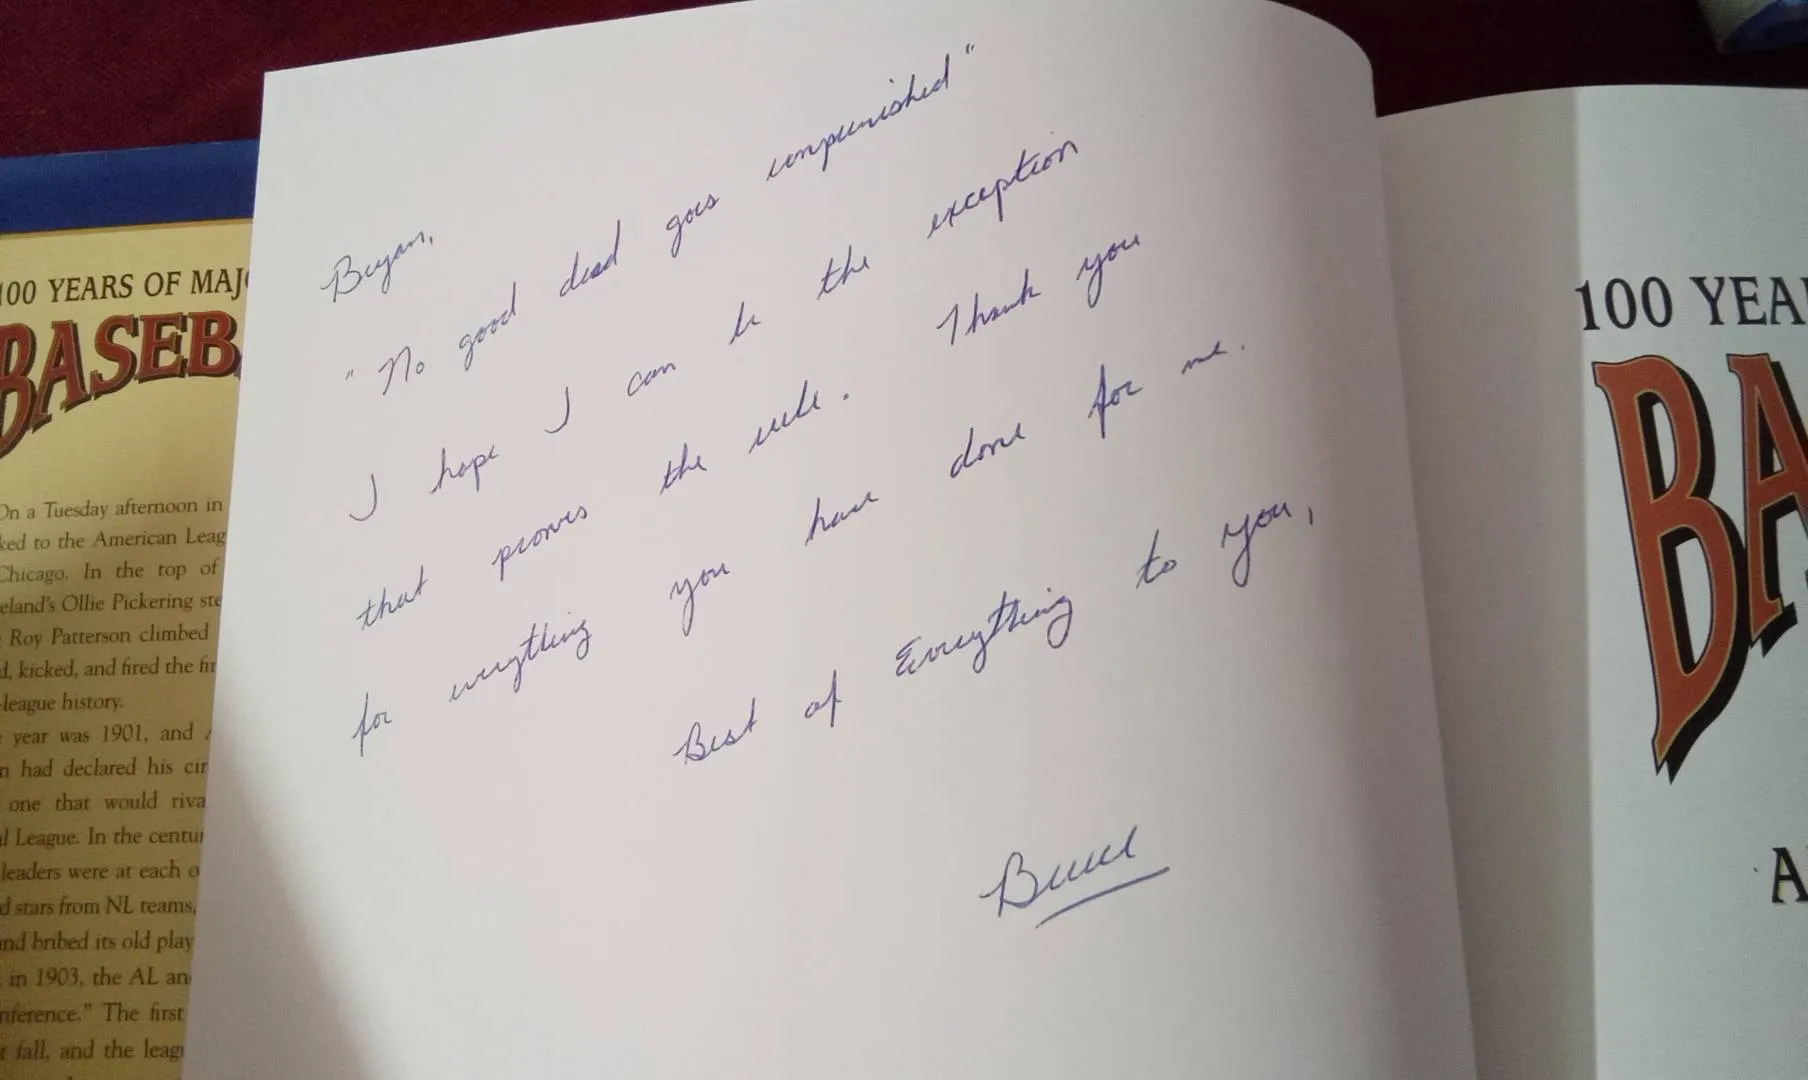 100 YEARS OF MAJ
BASEB
On a Tuesday afternoon in
ked to the American Leag
Chicago. In the top of
eland's Ollie Pickering ste
Roy Patterson climbed
d, kicked, and fired the fir
-league history.
year was 1901, and
n had declared his cir
one that would riva
l League. In the centur
leaders were at each o
d stars from NL teams,
and bribed its old play
in 1903, the AL an
nference." The first
t fall, and the leagu
Bryan,
"No good deed goes unpunished"
I hope I can be the exception
that proves the rule. Thank you
for everything you have done for me.
Best of Everything to you,
Bruce
100 YEA
BA
A